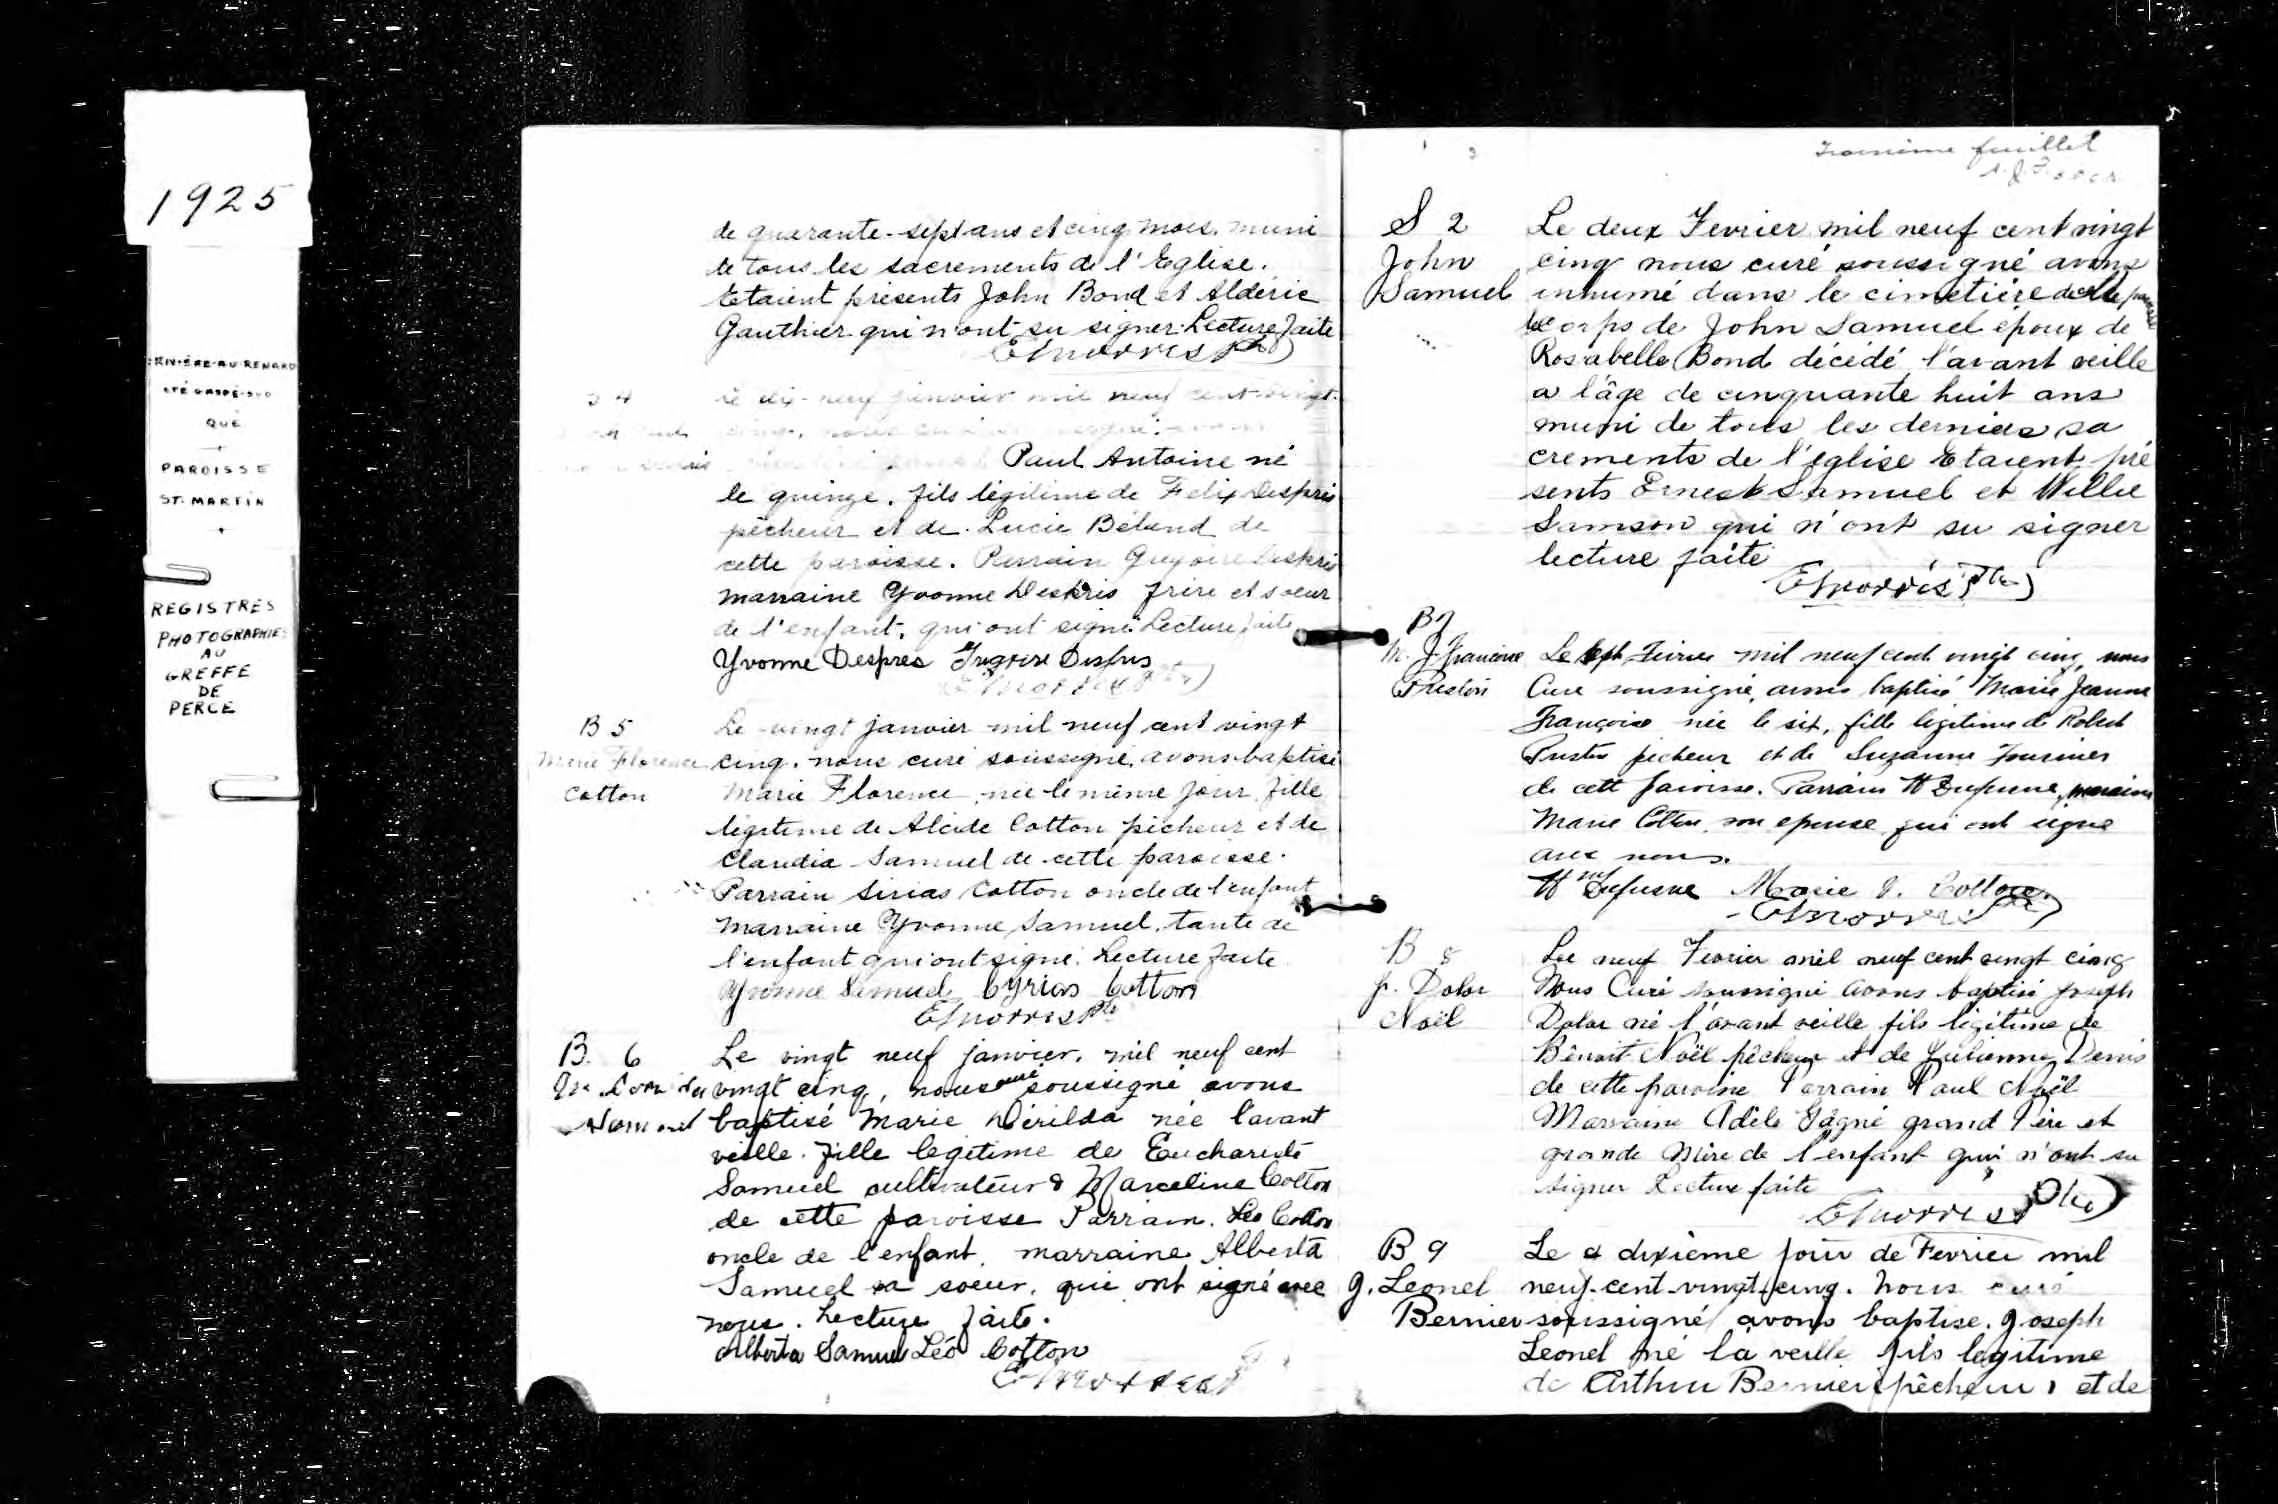 1925
RIVIÈRE-AU-RENARD
CTÉ GASPÉ-SUD
QUÉ
PAROISSE
ST. MARTIN
REGISTRES
PHOTOGRAPHIÉS
AU
GREFFE
DE
PERCE
de quarante-sept ans et cinq mois, muni
de tous les sacrements de l'Eglise.
Etaient présents John Bond et Alderic
Gauthier qui n'ont su signer. Lecture faite
E Morris Ptr
4
Le dix-neuf janvier mil neuf cent vingt
cinq, nous
Paul Antoine né
le quinze, fils légitime de Felix Despris
pêcheur et de Lucie Béland de
cette paroisse. Parrain Gregoire Despris
marraine Yvonne Despris frère et soeur
de l'enfant, qui ont signé. Lecture faite
Yvonne Despres
E Morris Ptr
B 5
Marie Florence
Cotton
Le vingt janvier mil neuf cent vingt
cinq, nous curé soussigné, avons baptisé
Marie Florence, née le même jour, fille
légitime de Alcide Cotton pêcheur et de
Claudia Samuel de cette paroisse.
Parrain Sirias Cotton oncle de l'enfant
marraine Yvonne Samuel, tante de
l'enfant qui ont signé. Lecture faite
Yvonne Samuel Cyrias Cotton
E Morris Ptr
B. 6
Samuel
Le vingt neuf janvier, mil neuf cent
vingt cinq, nous curé soussigné avons
baptisé Marie Dérilda née l'avant
veille. fille legitime de Euchariste
Samuel cultivateur & Marceline Cotton
de cette paroisse Parrain. Léo Cotton
oncle de l'enfant, marraine Alberta
Samuel sa soeur, qui ont signé avec
nous. Lecture faite.
Alberta Samuel Léo Cotton
E Morris
Troisième feuillet
S 2
John
Samuel
Le deux Fevrier mil neuf cent vingt
cinq nous curé soussigné avons
inhumé dans le cimetière de
le corps de John Samuel époux de
Rosabelle Bond décédé l'avant veille
a l'âge de cinquante huit ans
muni de tous les derniers sa
crements de l'église Etaient pré
sents Ernest Samuel et Willie
Samson qui n'ont su signer
lecture faite
E Morris Ptr
B 7
M. J. Françoise
Preston
Le sept Fevrier mil neuf cent vingt cinq, nous
Curé soussigné, avons baptisé Marie Jeanne
Françoise née le six, fille légitime de Robert
pecheur et de Suzanne Fournier
de cette paroisse. Parrain W Dufresne, marraine
Marie Cotton, son epouse, qui ont signé
avec nous.
Wm Dufresne Marie J. Cotton
E Morris Ptr
B 8
J. Dolor
Noël
Le neuf Fevrier mil neuf cent vingt cinq
Nous Curé soussigné avons baptisé Joseph
Dolor né l'avant veille fils légitime de
Bênoit Noël pêcheur et de Julienne Denis
de cette paroisse Parrain Paul Noël
Marraine Adèle Gagné grand Père et
grande Mère de l'enfant qui n'ont su
signer Lecture faite
E Morris Ptr
B 9
J. Leonel
Bernier
Le dixième jour de Fevrier mil
neuf-cent-vingt-cinq. Nous curé
soussigné avons baptise. Joseph
Leonel né la veille fils legitime
de Arthur Bernier pêcheur, et de